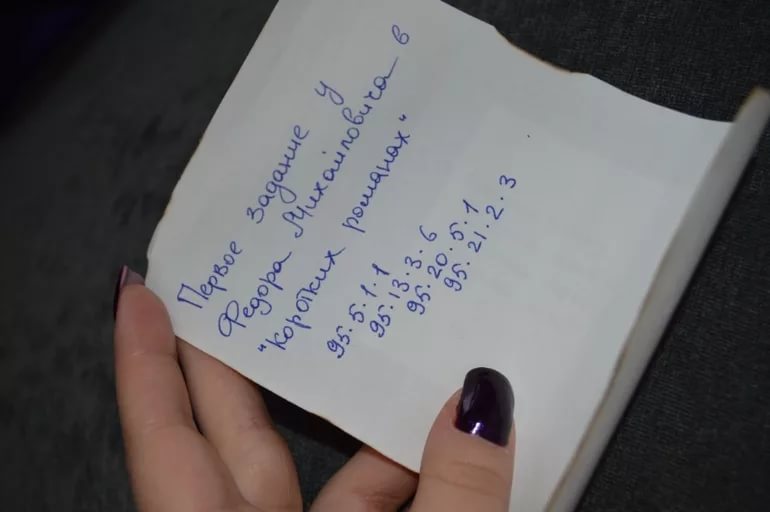 Первое задание у
Федора Михайловича в
"коротких романах"
95.5.1.1
95.13.3.6
95.20.5.1
95.21.2.3